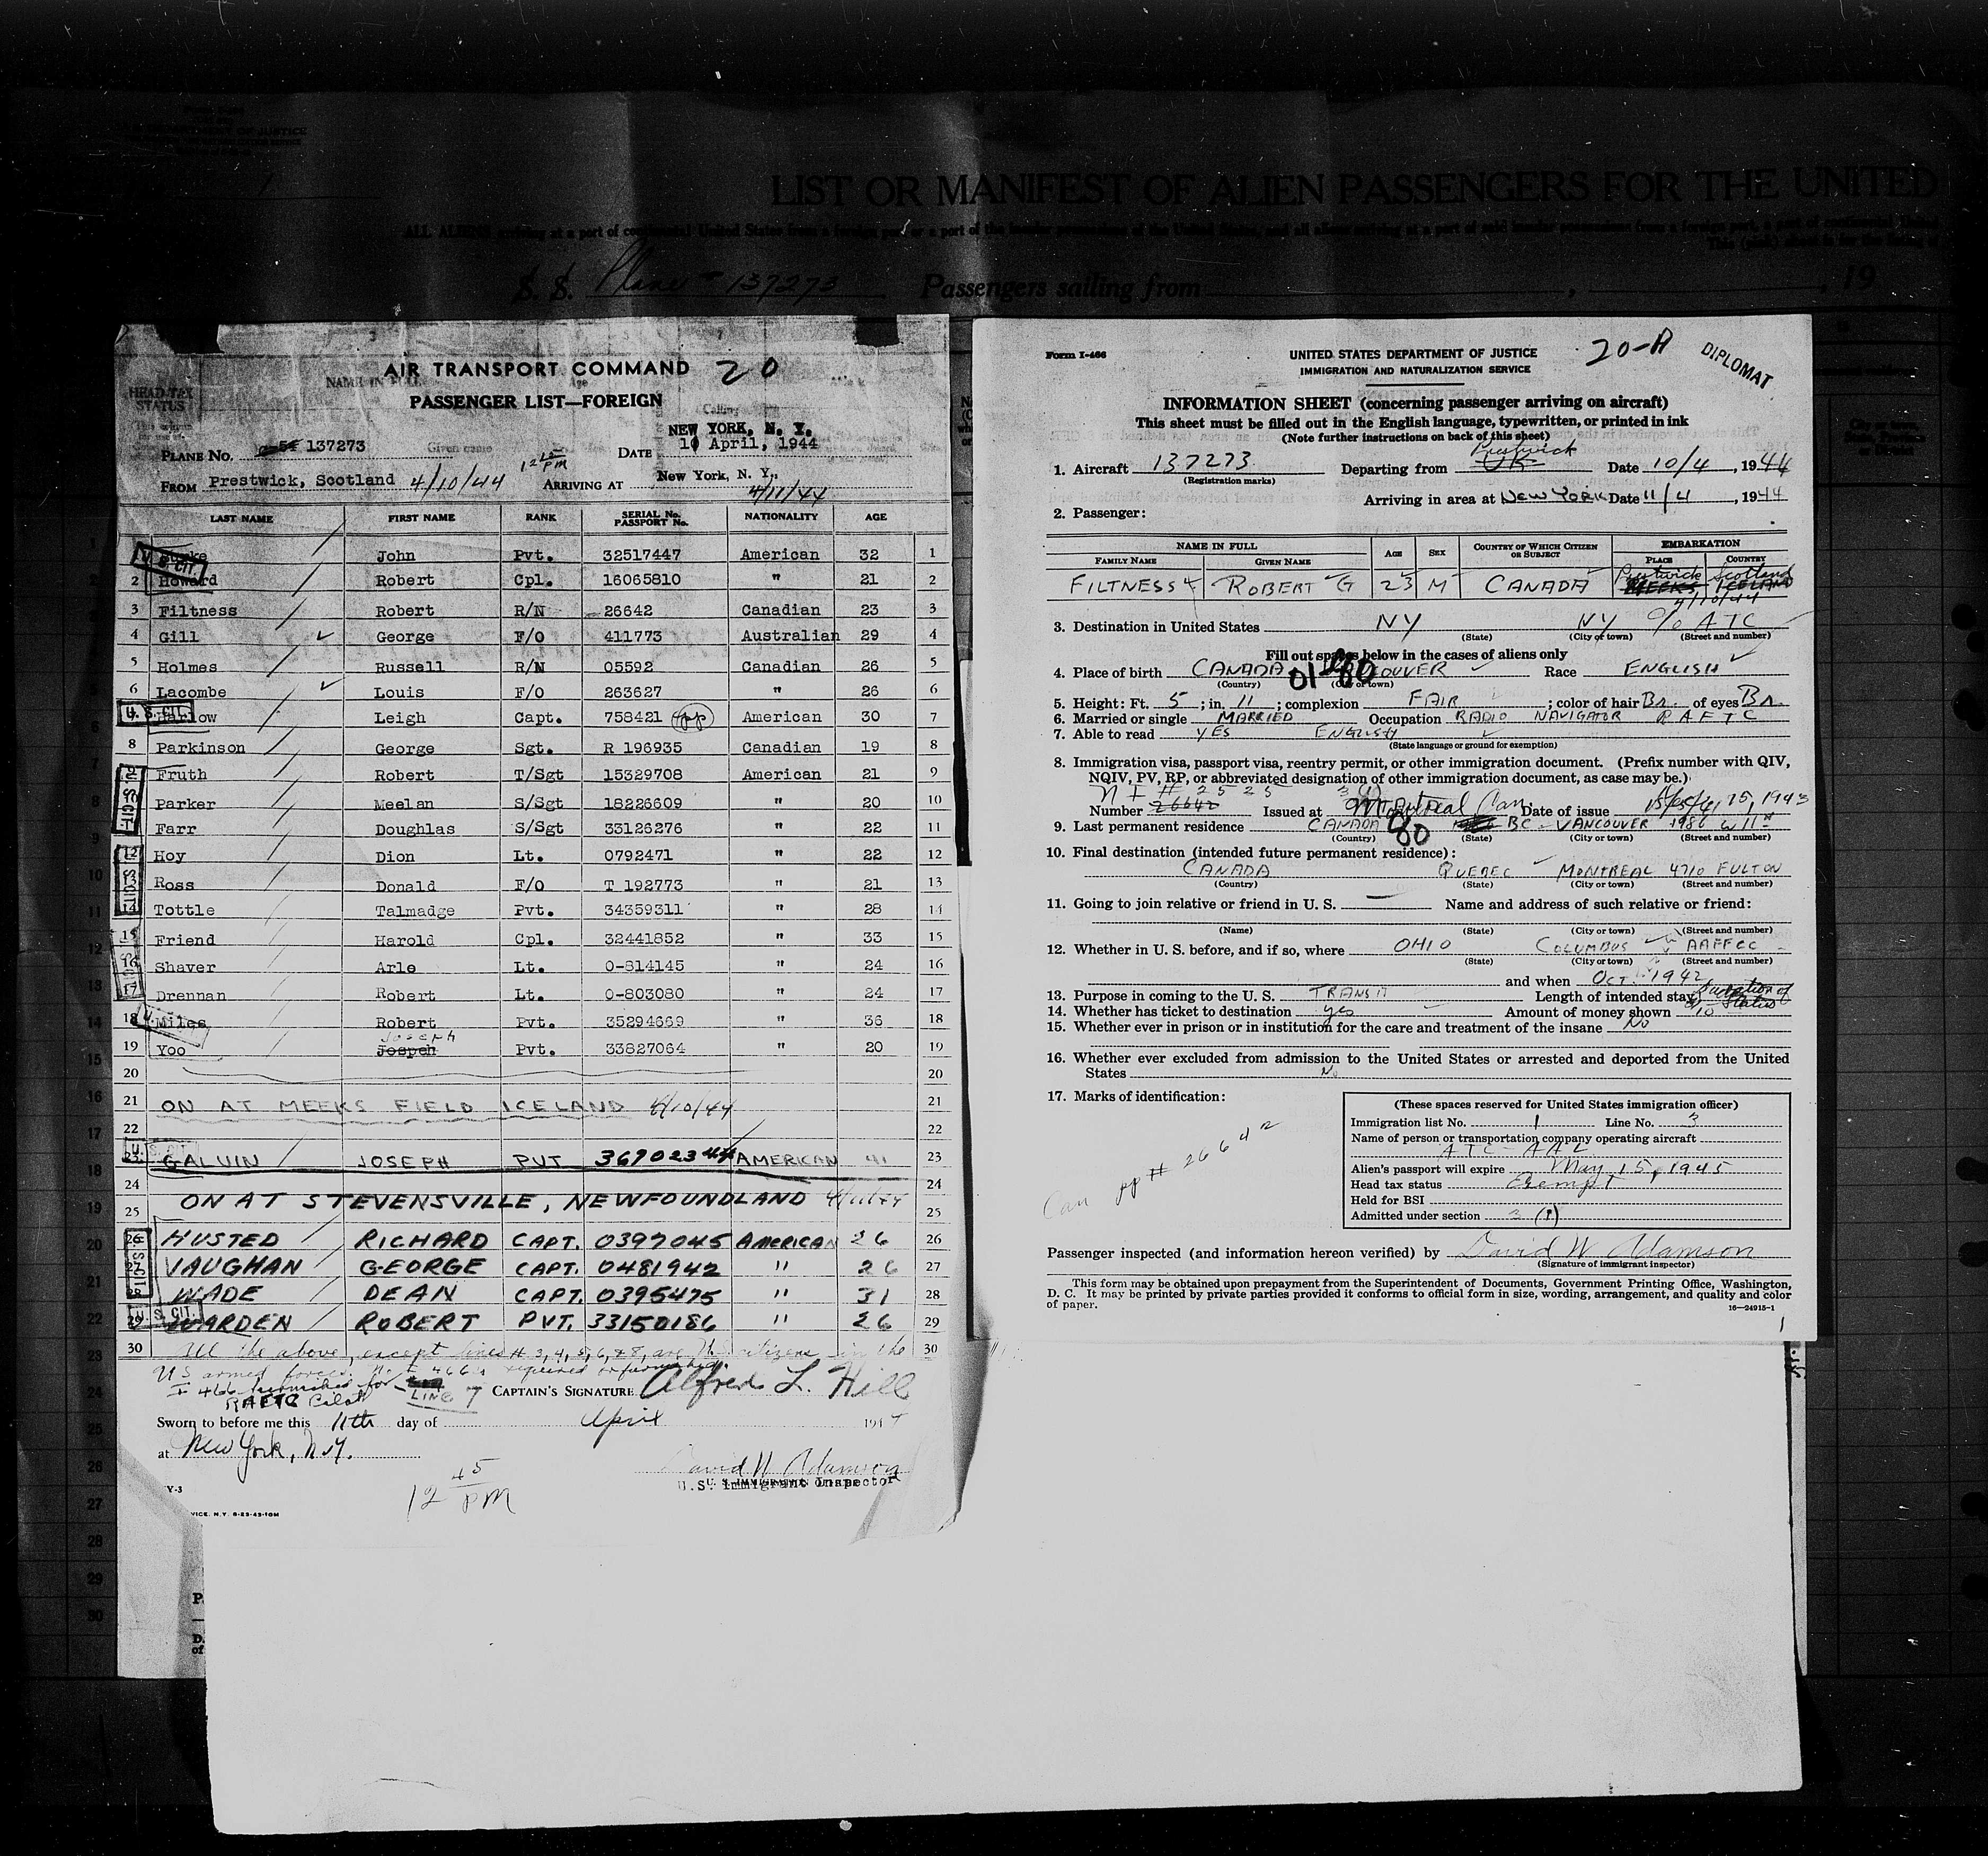 LIST OR MANIFEST OF ALIEN PASSENGERS FOR THE UNITED
S. S. Plane # 137273 Passengers sailing from , , 19
AIR TRANSPORT COMMAND 20
PASSENGER LIST—FOREIGN
NEW YORK, N. Y.
PLANE NO. 137273 DATE 10 April, 1944
FROM Prestwick, Scotland 4/10/44 ARRIVING AT New York, N. Y.
4/11/44
LAST NAME FIRST NAME RANK SERIAL No. PASSPORT No. NATIONALITY AGE
John Pvt. 32517447 American 32 1
2 Howard Robert Cpl. 16065810 " 21 2
3 Filtness Robert R/N 26642 Canadian 23 3
4 Gill George F/O 411773 Australian 29 4
5 Holmes Russell R/N 05592 Canadian 26 5
6 Lacombe Louis F/O 263627 " 26 6
U. S. CIT. Leigh Capt. 758421 pp American 30 7
8 Parkinson George Sgt. R 196935 Canadian 19 8
Fruth Robert T/Sgt 15329708 American 21 9
Parker Meelan S/Sgt 18226609 " 20 10
Farr Doughlas S/Sgt 33126276 " 22 11
12 Hoy Dion Lt. 0792471 " 22 12
13 Ross Donald F/O T 192773 " 21 13
14 Tottle Talmadge Pvt. 34359311 " 28 14
15 Friend Harold Cpl. 32441852 " 33 15
16 Shaver Arle Lt. 0-814145 " 24 16
17 Drennan Robert Lt. 0-803080 " 24 17
18 Miles Robert Pvt. 35294669 " 36 18
Joseph
19 Yoo Jospeh Pvt. 33827064 " 20 19
20 20
21 ON AT MEEKS FIELD ICELAND 4/10/44 21
22 22
23 GALVIN JOSEPH PVT 36902344 AMERICAN 41 23
24 24
25 ON AT STEVENSVILLE, NEWFOUNDLAND 4/11/44 25
26 HUSTED RICHARD CAPT. 0397045 AMERICAN 26 26
27 VAUGHAN GEORGE CAPT. 0481942 " 26 27
28 WADE DEAN CAPT. 0395475 " 31 28
29 WARDEN ROBERT PVT. 33150186 " 26 29
30 All the above, except lines # 3, 4, 5, 6, & 8, are citizens in the 30
US armed forces. required or furnished.
I 466 furnished for LINE 7
RAFTC CAPTAIN'S SIGNATURE Alfred L. Hill
Sworn to before me this 11th day of April 1944
at New York, N.Y.
David W Adamson
U.S. Immigrant Inspector
12 45 PM
Y-3
VICE. N.Y. 8-23-43-10M
Form I-466 UNITED STATES DEPARTMENT OF JUSTICE 20-A DIPLOMAT
IMMIGRATION AND NATURALIZATION SERVICE
INFORMATION SHEET (concerning passenger arriving on aircraft)
This sheet must be filled out in the English language, typewritten, or printed in ink
(Note further instructions on back of this sheet)
Prestwick
1. Aircraft 137273 Departing from UK Date 10/4, 1944
(Registration marks)
Arriving in area at NEW YORK Date 11/4, 1944
2. Passenger:
NAME IN FULL AGE SEX COUNTRY OF WHICH CITIZEN OR SUBJECT EMBARKATION
FAMILY NAME GIVEN NAME PLACE COUNTRY
Prestwick Scotland
FILTNESS ROBERT G 23 M CANADA MEEKS ICELAND
4/10/44
3. Destination in United States NY NY % ATC
(State) (City or town) (Street and number)
Fill out spaces below in the cases of aliens only
4. Place of birth CANADA VANCOUVER Race ENGLISH
(Country) (City or town)
5. Height: Ft. 5; in. 11; complexion FAIR; color of hair Br. of eyes Br.
6. Married or single MARRIED Occupation RADIO NAVIGATOR RAFTC
7. Able to read YES ENGLISH
(State language or ground for exemption)
8. Immigration visa, passport visa, reentry permit, or other immigration document. (Prefix number with QIV,
NQIV, PV, RP, or abbreviated designation of other immigration document, as case may be.)
# 2525 3 (1)
Number 26642 Issued at Montreal Can. Date of issue 15, 1943
9. Last permanent residence CANADA 80 BC - VANCOUVER 1986 W 11th
(Country) (State) (City or town) (Street and number)
10. Final destination (intended future permanent residence):
CANADA QUEBEC MONTREAL 4710 FULTON
(Country) (State) (City or town) (Street and number)
11. Going to join relative or friend in U. S. — Name and address of such relative or friend:
(Name) (State) (City or town) (Street and number)
12. Whether in U. S. before, and if so, where OHIO COLUMBUS AAFFCC
(State) (City or town) (Street and number)
and when OCT. 1942
13. Purpose in coming to the U. S. TRANSIT Length of intended stay duration of status
14. Whether has ticket to destination yes Amount of money shown 10
15. Whether ever in prison or in institution for the care and treatment of the insane No
16. Whether ever excluded from admission to the United States or arrested and deported from the United
States No
17. Marks of identification:
Can pp # 26642
(These spaces reserved for United States immigration officer)
Immigration list No. 1 Line No. 3
Name of person or transportation company operating aircraft
ATC - AAL
Alien's passport will expire May 15, 1945
Head tax status Exempt
Held for BSI
Admitted under section 3 (1)
Passenger inspected (and information hereon verified) by David W Adamson
(Signature of immigrant inspector)
This form may be obtained upon prepayment from the Superintendent of Documents, Government Printing Office, Washington,
D. C. It may be printed by private parties provided it conforms to official form in size, wording, arrangement, and quality and color
of paper. 16—24915-1
1